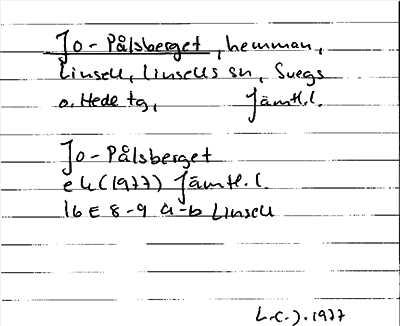 Jo-Pålsberget, hemman,
Linsell, Linsells sn, Svegs
o. Hede tg, Jämtl.l.
Jo-Pålsberget
ek (1977) Jämtl.l.
16E 8-9 a-b Linsell
L.C.J. 1977